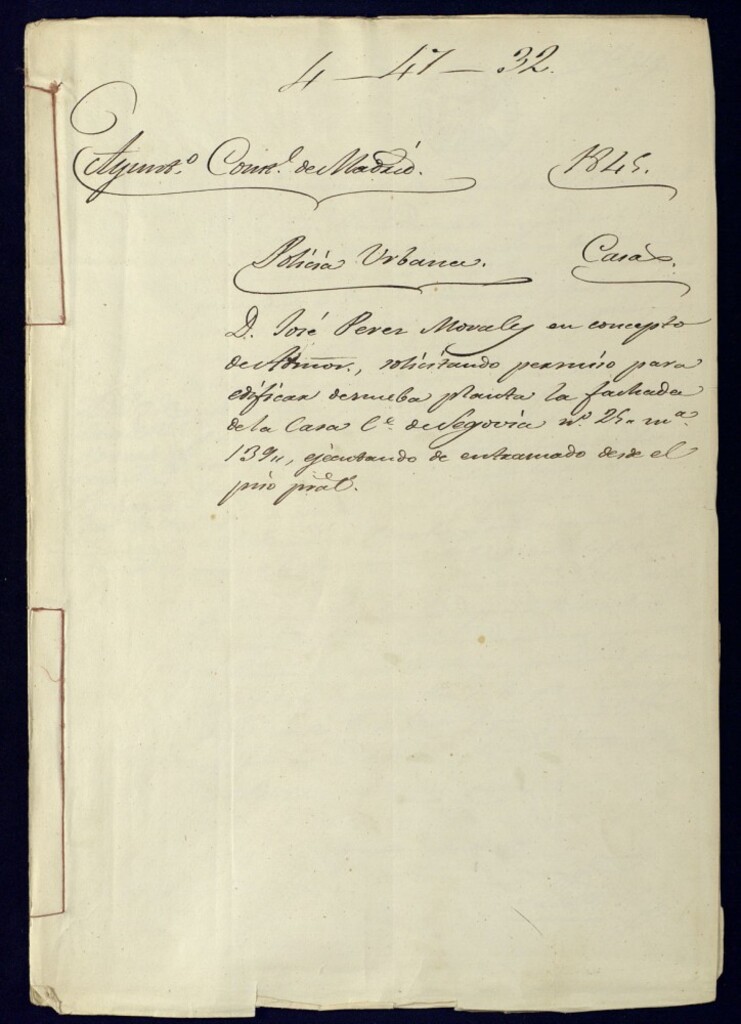 4 - 47 - 32.
Ayunt.º Con.l de Madrid. 1845.
Policía Urbana. Casas.
D. José Perez Morales en concepto
de Admor., solicitando permiso para
edificar de nueba planta la fachada
de la Casa C.e de Segovia nº. 25 " m.a
139 ", ejecutando de entramado desde el
piso pral.